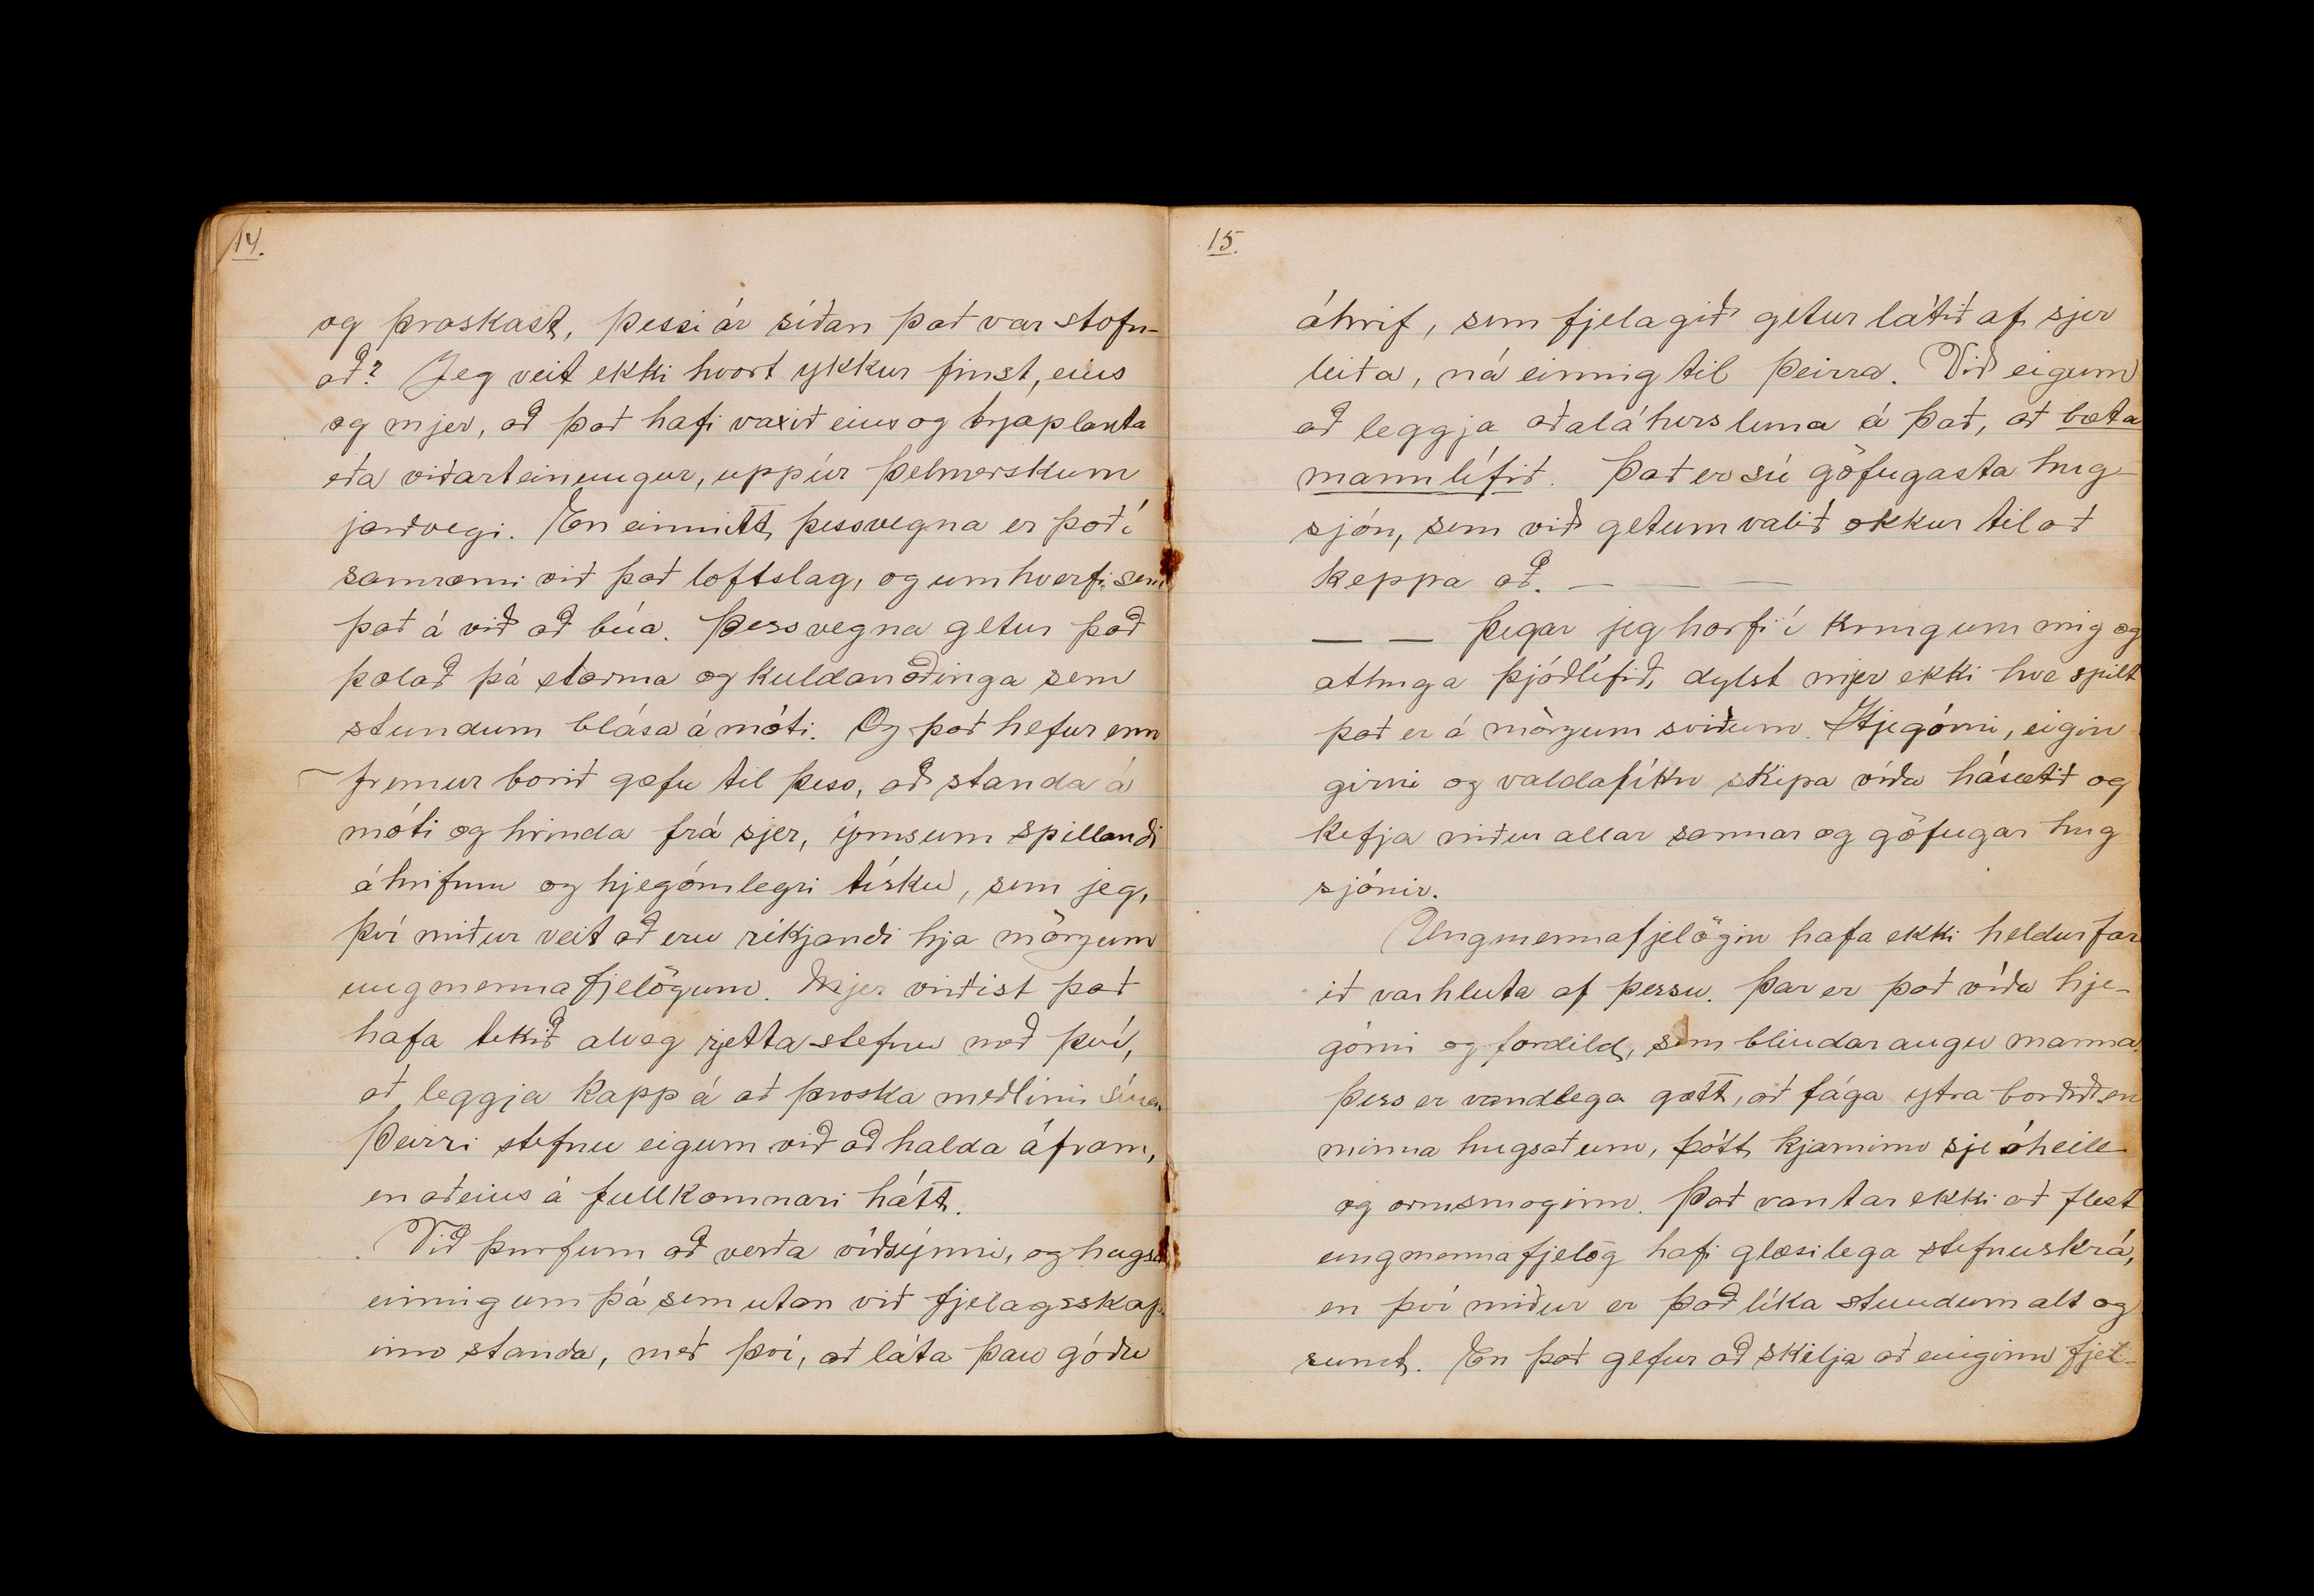 14.
og þroskast, þessi ár síðan það var stofn-
að? Jeg veit ekki hvort ykkur finst, eins
og mjer, að það hafi vaxið eins og trjáplanta
eða viðarteinungur, uppúr þelmerskum
jarðvegi. En einmitt þessvegna er það í
samræmi við það loftslag, og umhverfi sem
það á við að búa. Þessvegna getur það
þolað þá storma og kuldanæðinga sem
stundum blása á móti. Og það hefur enn
fremur borið gæfu til þess, að standa á
móti og hrinda frá sjer, ýmsum spillandi
áhrifum og hjegómlegri tísku, sem jeg,
því miður veit að eru ríkjandi hja mörgum
ungmennafjelögum. Mjer virðist það
hafa tekið alveg rjetta stefnu með því,
að leggja kapp á að þroska meðlimi sína.
Þeirri stefnu eigum við að halda áfram,
en aðeins á fullkomnari hátt.
Við þurfum að verða víðsýnni, og hugsa
einnig um þá sem utan við fjelagsskap
inn standa, með því, að láta þau góðu
15.
áhrif, sem fjelagið getur látið af sjer
leiða, ná einnig til þeirra. Við eigum
að leggja aðaláhersluna á það, að bæta
mannlífið. Það er sú göfugasta hug-
sjón, sem við getum valið okkur til að
keppa að. — — —
— — Þegar jeg horfi í kringum mig og
athuga þjóðlífið, dylst mjer ekki hve spilt
það er á mörgum sviðum. Hjegómi, eigin
girni og valdafíkn skipa víða hásætið og
kefja niður allar sannar og göfugar hug
sjónir.
Ungmennafjelögin hafa ekki heldur far
ið varhluta af þessu. Þar er það víða hje-
gómi og fordild, sem blindar augu manna.
Þess er vandlega gætt, að fága ytra borðið en
minna hugsað um, þótt kjarninn sje óheill
og ormsmoginn. Það vantar ekki að flest
ungmennafjelög hafi glæsilega stefnuskrá,
en því miður er það líka stundum alt og
sumt. En það gefur að skilja að einginn fjel-